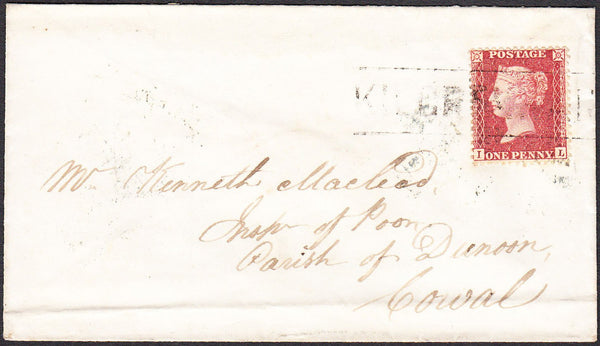 POSTAGE
I L
ONE PENNY
Mr Kenneth Macleod,
Inspr of Poor,
Parish of Dunoon,
Cowal